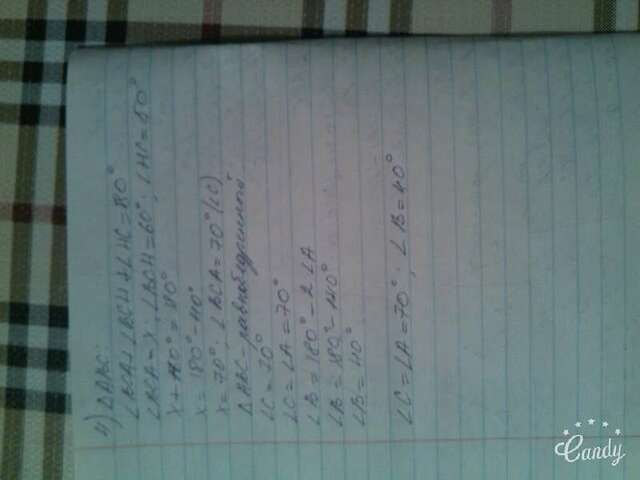 4) ΔABC:
∠BCA+∠BCH+∠HC=180°
∠BCA=x; ∠BCH=60°; ∠HC=50°
x+110°=180°
x=180°-110°
x=70°; ∠BCA=70°(∠C)
ΔABC-равнобедренный
∠C=70°
∠C=∠A=70°
∠B=180°-2∠A
∠B=180°-140°
∠B=40°
∠C=∠A=70°; ∠B=40°
Candy